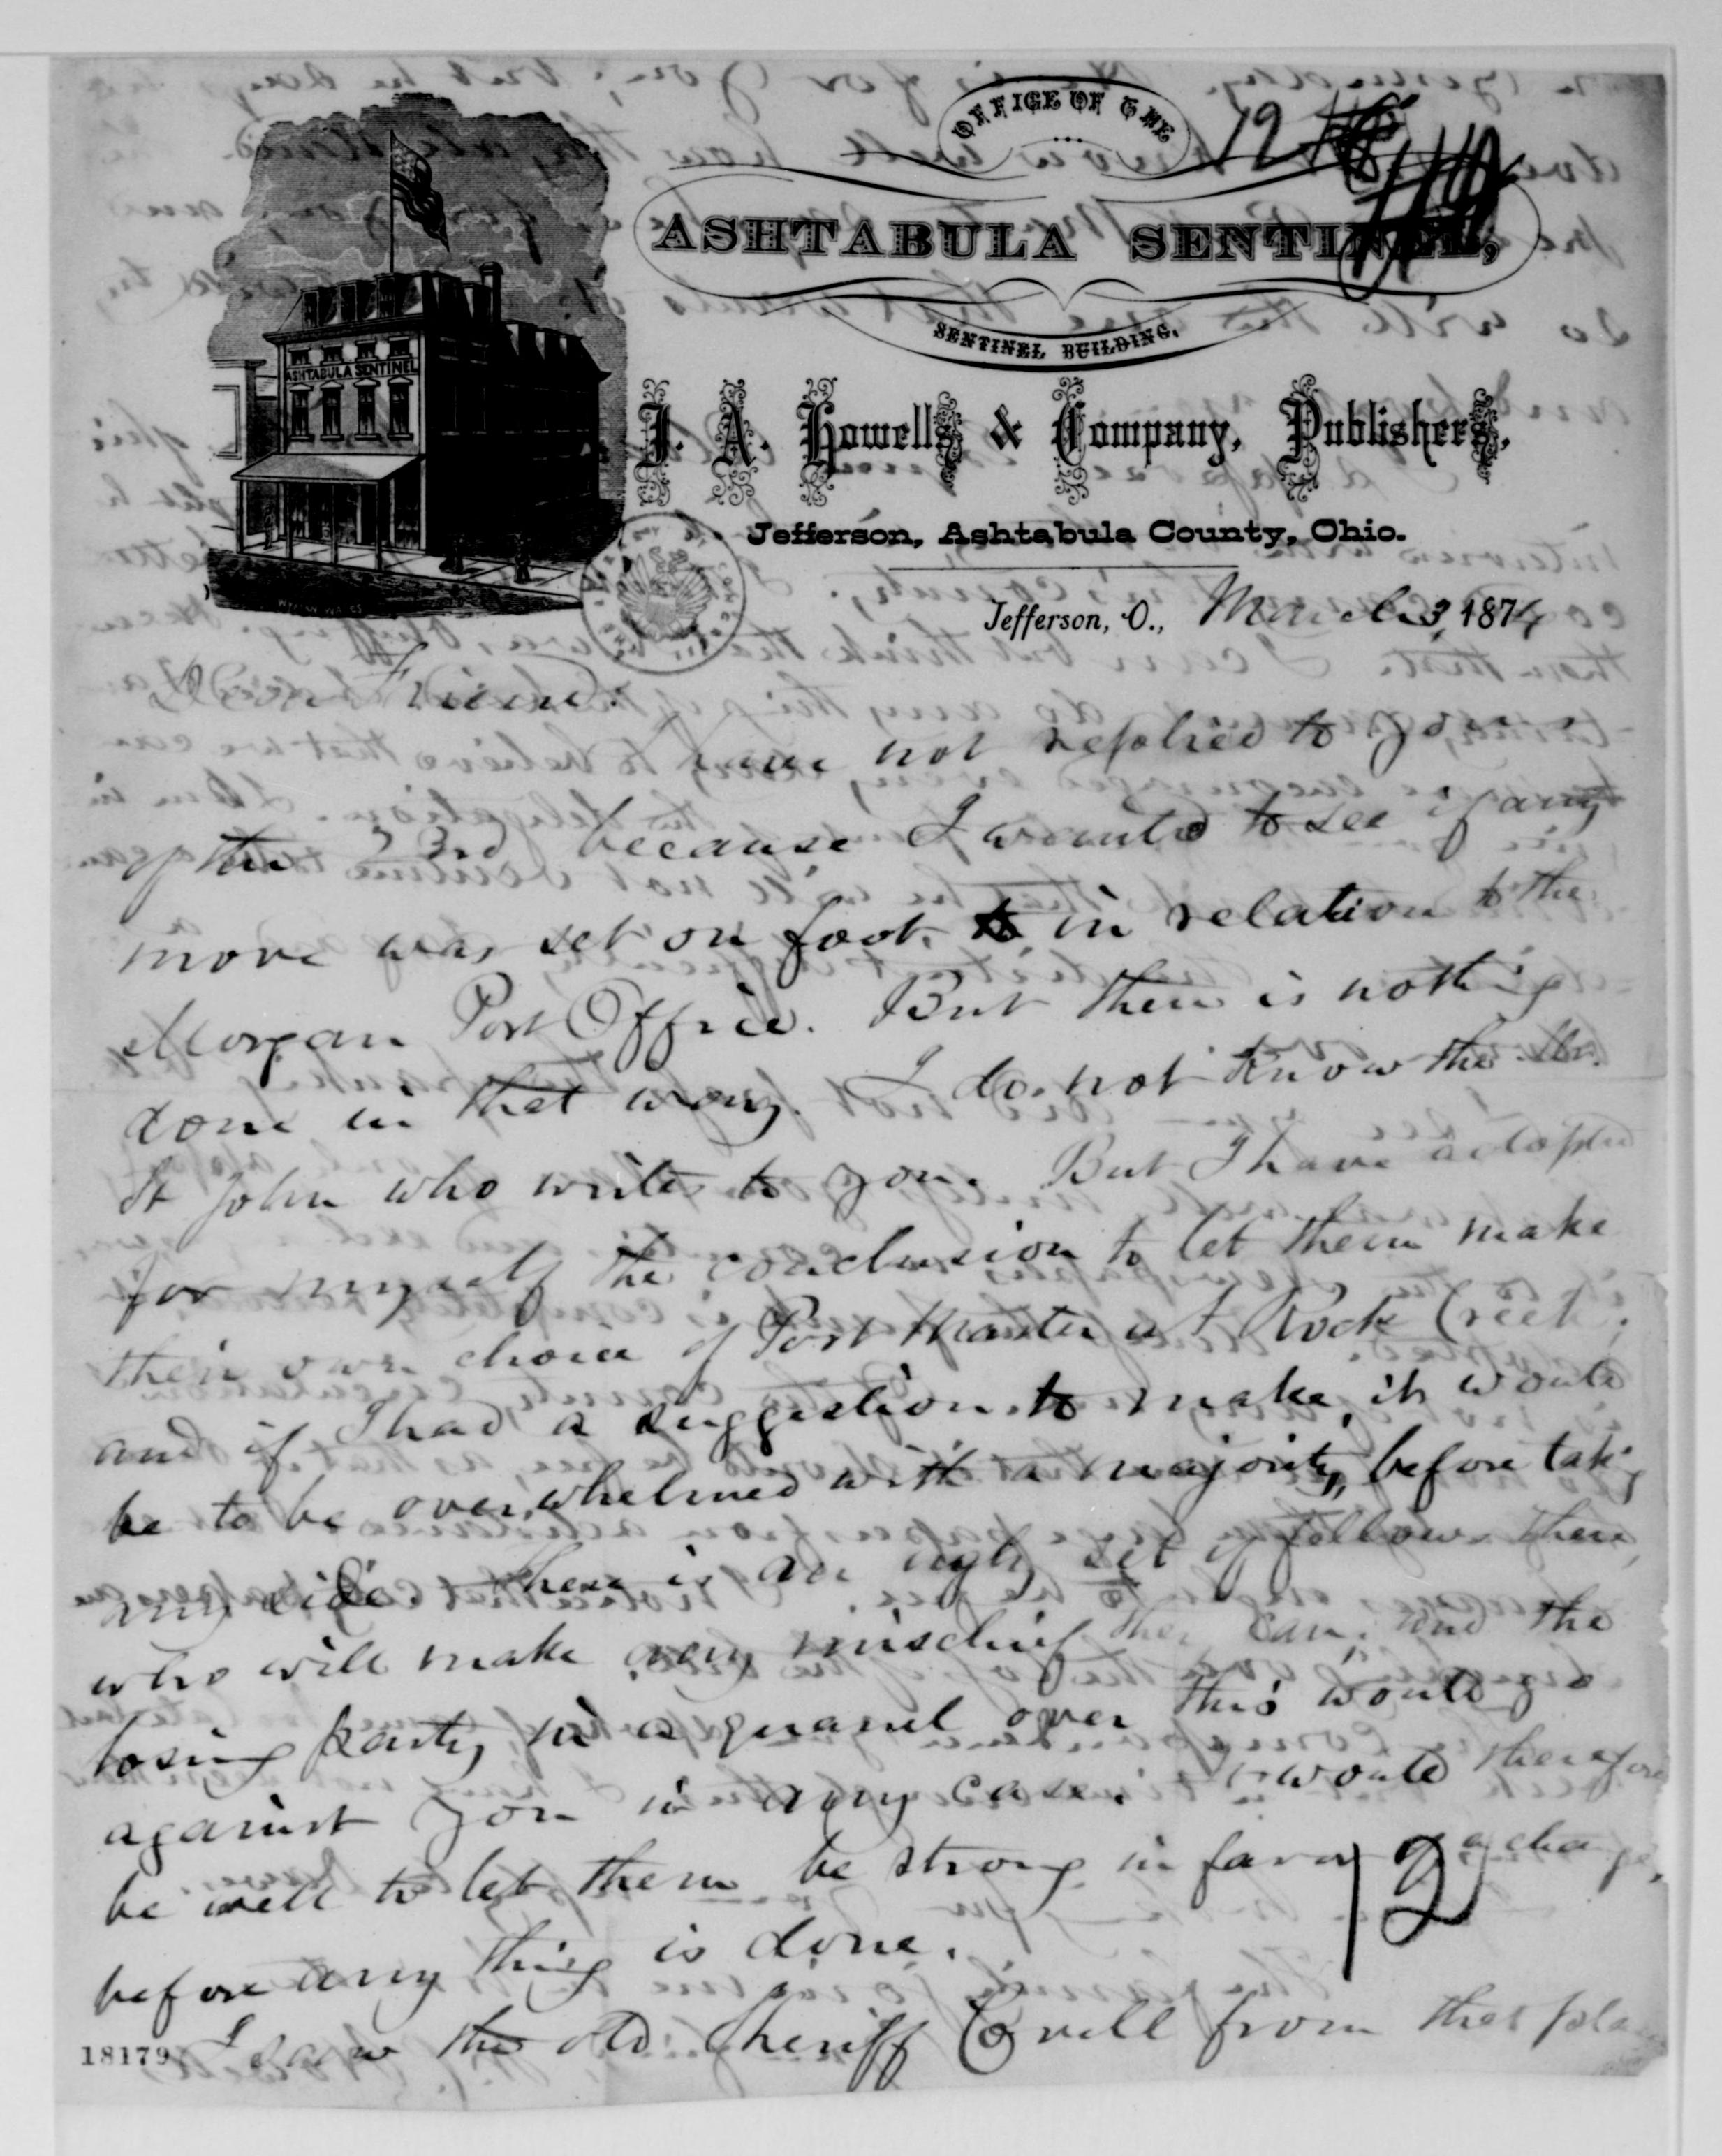 OFFICE OF THE
12
ASHTABULA SENTINEL,
SENTINEL BUILDING.
ASHTABULA SENTINEL
J. A. Howells & Company, Publishers,
Jefferson, Ashtabula County, Ohio.
Jefferson, O., March 3, 1874
Dear Friend:
I have not replied to yours
of the 23rd because I wanted to see if any
move was set on foot in relation to the
Morgan Post Office. But there is nothing
done in that way. I do not know the Mr.
St John who writes to you. But I have adopted
for myself the conclusion to let them make
their own choice of Post Master at Rock Creek;
and if I had a suggestion to make, it would
be to be overwhelmed with a majority before taking
any side. There is an ugly set of fellows there,
who will make any mischief they can, and the
losing party in a quarrel over this would go
against you in any case. It would therefore
be well to let them be strong in favor of a change,
before any thing is done.
12
I saw the old Sheriff Covill from that place
18179